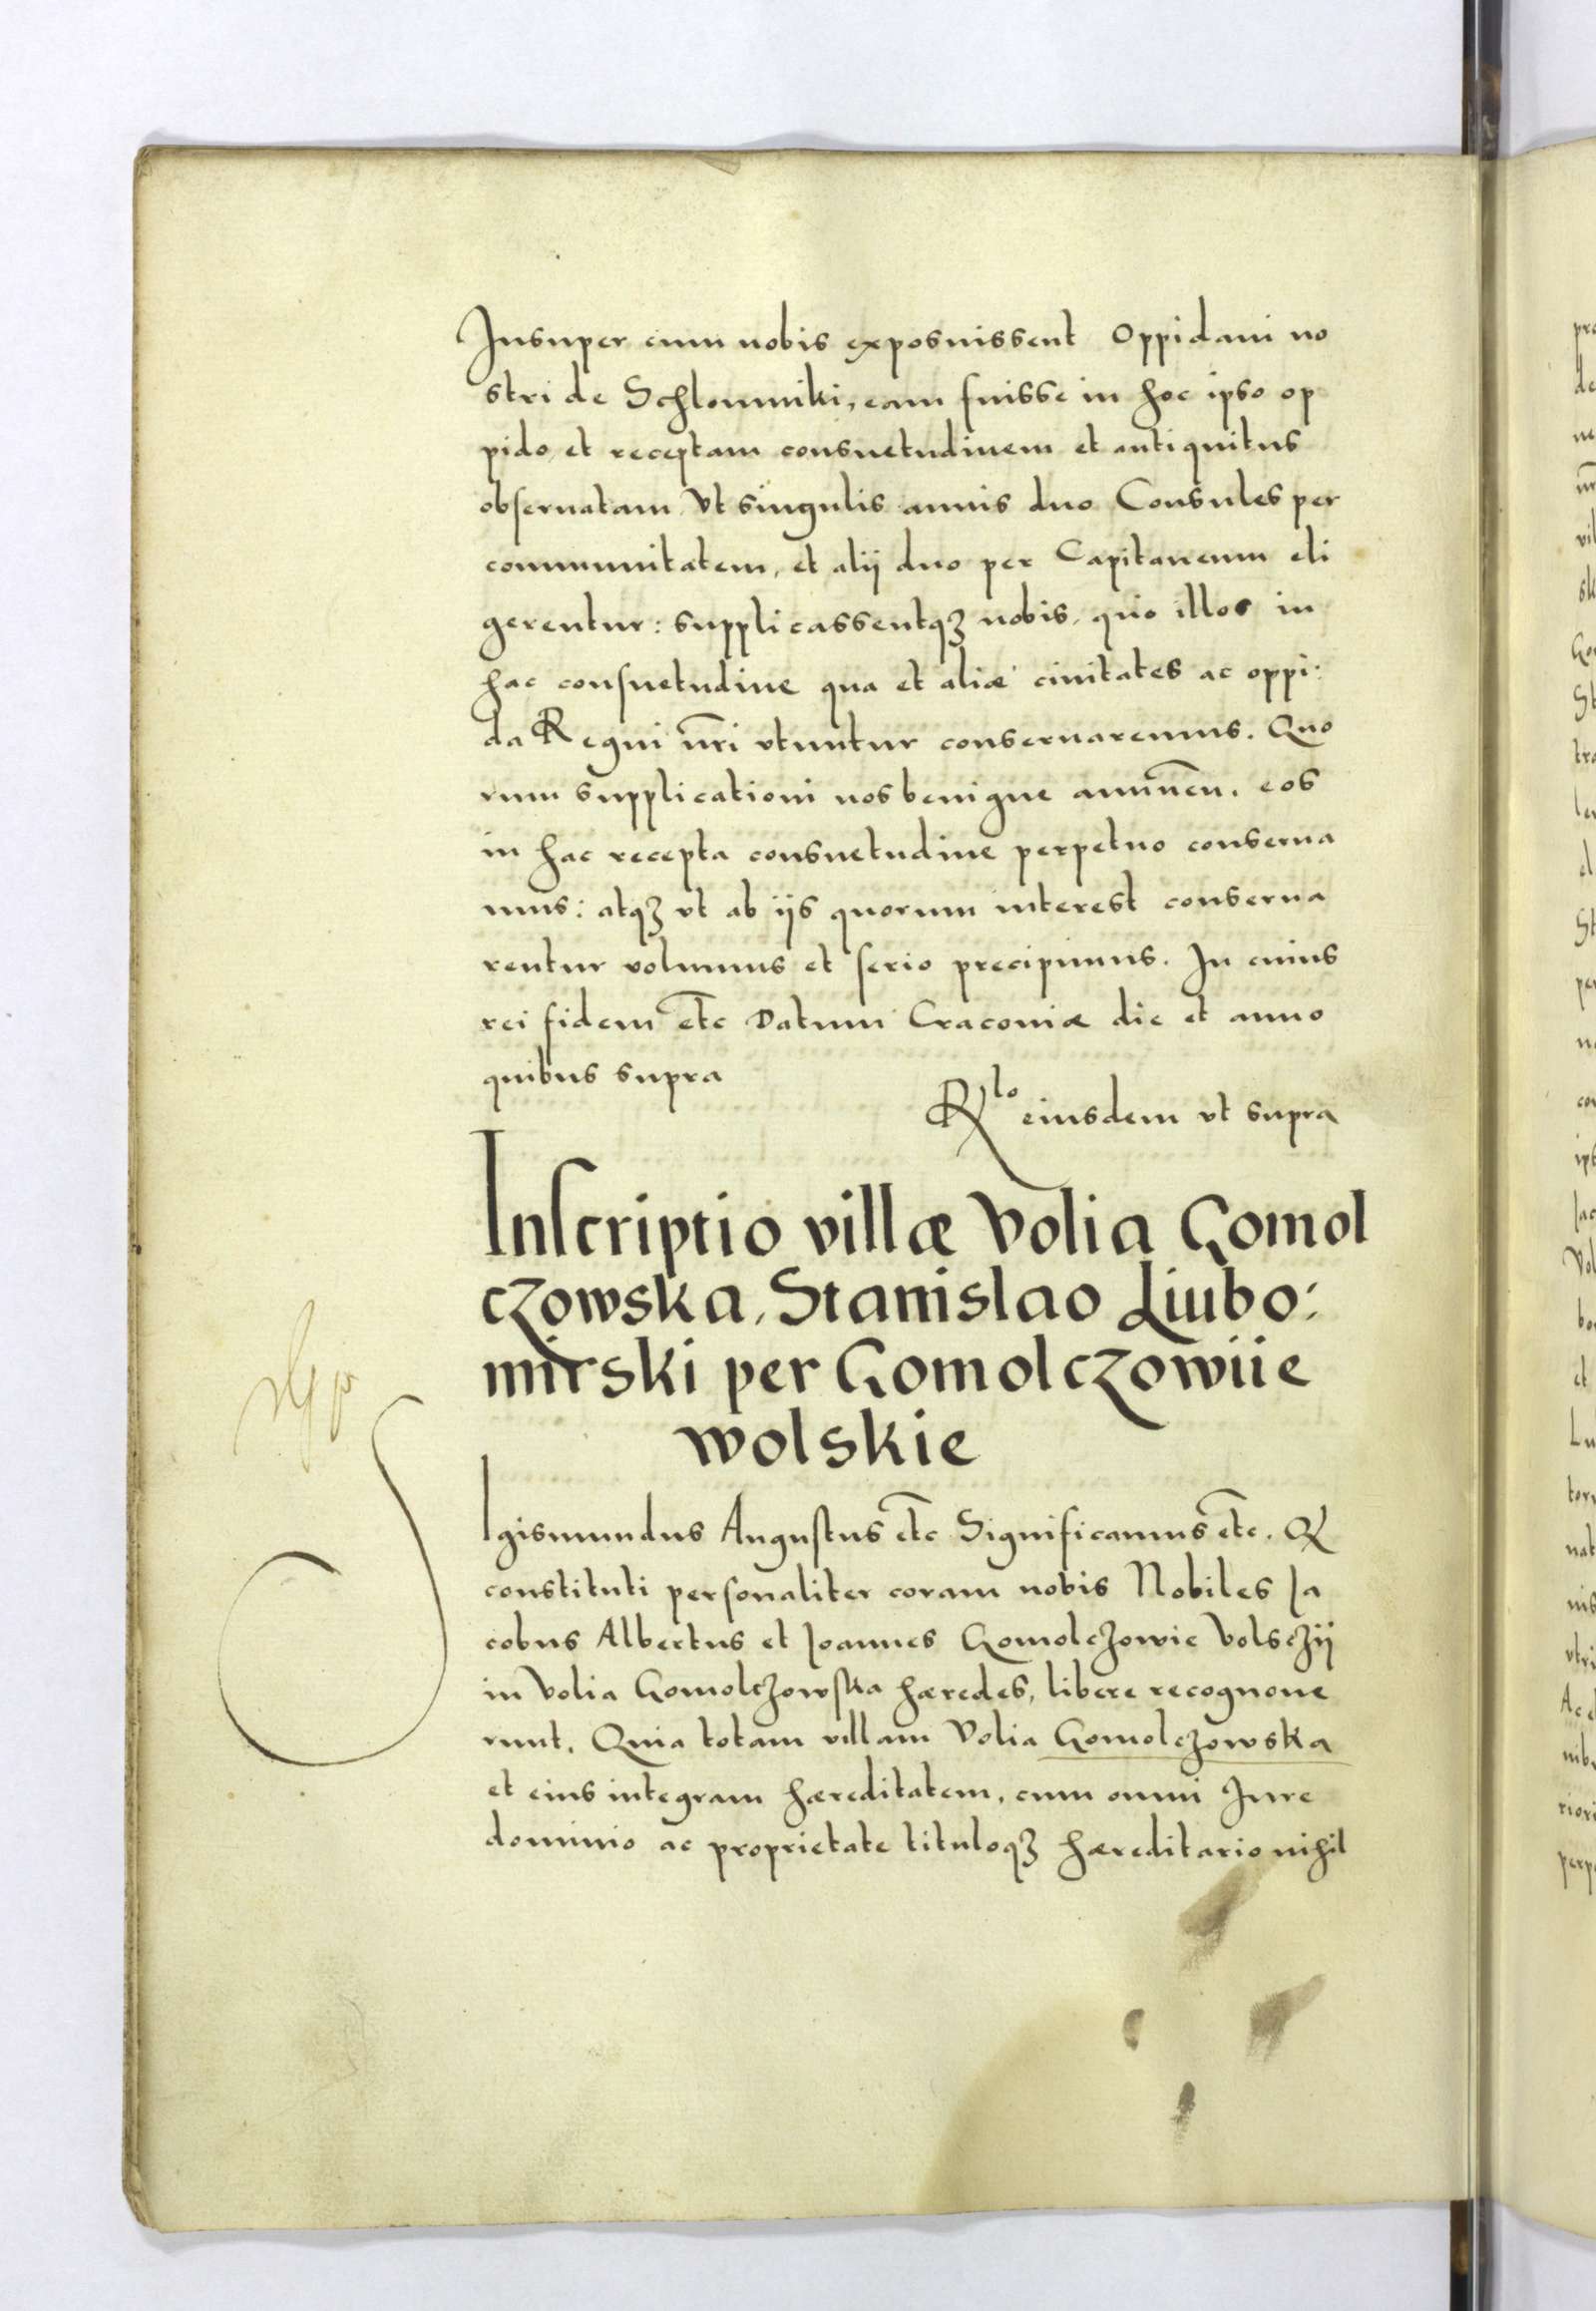 Insuper cum nobis exposuissent Oppidani no
stri de Schlomniki, eam fuisse in hoc ipso op
pido et receptam consuetudinem et antiquitus
obseruatam vt singulis annis duo Consules per
communitatem, et alij duo per Capitaneum eli
gerentur: supplicassentqꝫ nobis, quo illos in
hac consuetudine qua et aliæ ciuitates ac oppi:
da Regni nr̃i vtuntur conseruaremus. Quo
rum supplicationi nos benigne annuen̄. eos
in hac recepta consuetudine perpetuo conserua
mus: atqꝫ vt ab ijs quorum interest conserua
rentur volumus et serio precipimus. In cuius
rei fidem etc̄ Datum Cracouiæ die et anno
quibus supra
Rlo eiusdem vt supra
Inscriptio villæ Volia Gomol
czowska, Stanislao Liubo:
mirski per Gomolczowiie
wolskie
Sigismundus Augustus etc̄ Significamus etc̄. Q
constituti personaliter coram nobis Nobiles Ia
cobus Albertus et Ioannes Gomolczowie Volsczij
in Volia Gomolczowska hæredes, libere recognoue
runt. Quia totam villam Volia Gomolczowska
et eius integram hæreditatem, cum omni Iure
dominio ac proprietate tituloqꝫ hæreditario nihil